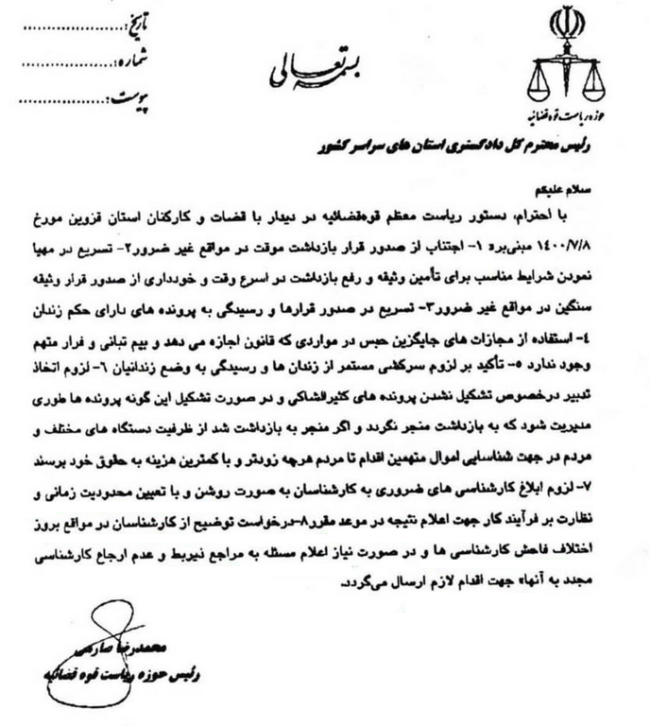 تاریخ:....................
بسمه تعالی
شماره:....................
پیوست:....................
حوزه ریاست قوه قضائیه
رئیس محترم کل دادگستری استان های سراسر کشور
سلام علیکم
با احترام، دستور ریاست معظم قوه‌قضائیه در دیدار با قضات و کارکنان استان قزوین مورخ
۱۴۰۰/۷/۸ مبنی‌بر» ۱- اجتناب از صدور قرار بازداشت موقت در مواقع غیر ضرور۲- تسریع در مهیا
نمودن شرایط مناسب برای تأمین وثیقه و رفع بازداشت در اسرع وقت و خودداری از صدور قرار وثیقه
سنگین در مواقع غیر ضرور۳- تسریع در صدور قرارها و رسیدگی به پرونده های دارای حکم زندان
۴- استفاده از مجازات های جایگزین حبس در مواردی که قانون اجازه می دهد و بیم تبانی و فرار متهم
وجود ندارد ۵- تأکید بر لزوم سرکشی مستمر از زندان ها و رسیدگی به وضع زندانیان ۶- لزوم اتخاذ
تدبیر درخصوص تشکیل نشدن پرونده های کثیرالشاکی و در صورت تشکیل این گونه پرونده ها طوری
مدیریت شود که به بازداشت منجر نگردد و اگر منجر به بازداشت شد از ظرفیت دستگاه های مختلف و
مردم در جهت شناسایی اموال متهمین اقدام تا مردم هرچه زودتر و با کمترین هزینه به حقوق خود برسند
۷- لزوم ابلاغ کارشناسی های ضروری به کارشناسان به صورت روشن و با تعیین محدودیت زمانی و
نظارت بر فرآیند کار جهت اعلام نتیجه در موعد مقرر۸-درخواست توضیح از کارشناسان در مواقع بروز
اختلاف فاحش کارشناسی ها و در صورت نیاز اعلام مسئله به مراجع ذیربط و عدم ارجاع کارشناسی
مجدد به آنها» جهت اقدام لازم ارسال می‌گردد.
محمدرضا صارمی
رئیس حوزه ریاست قوه قضائیه